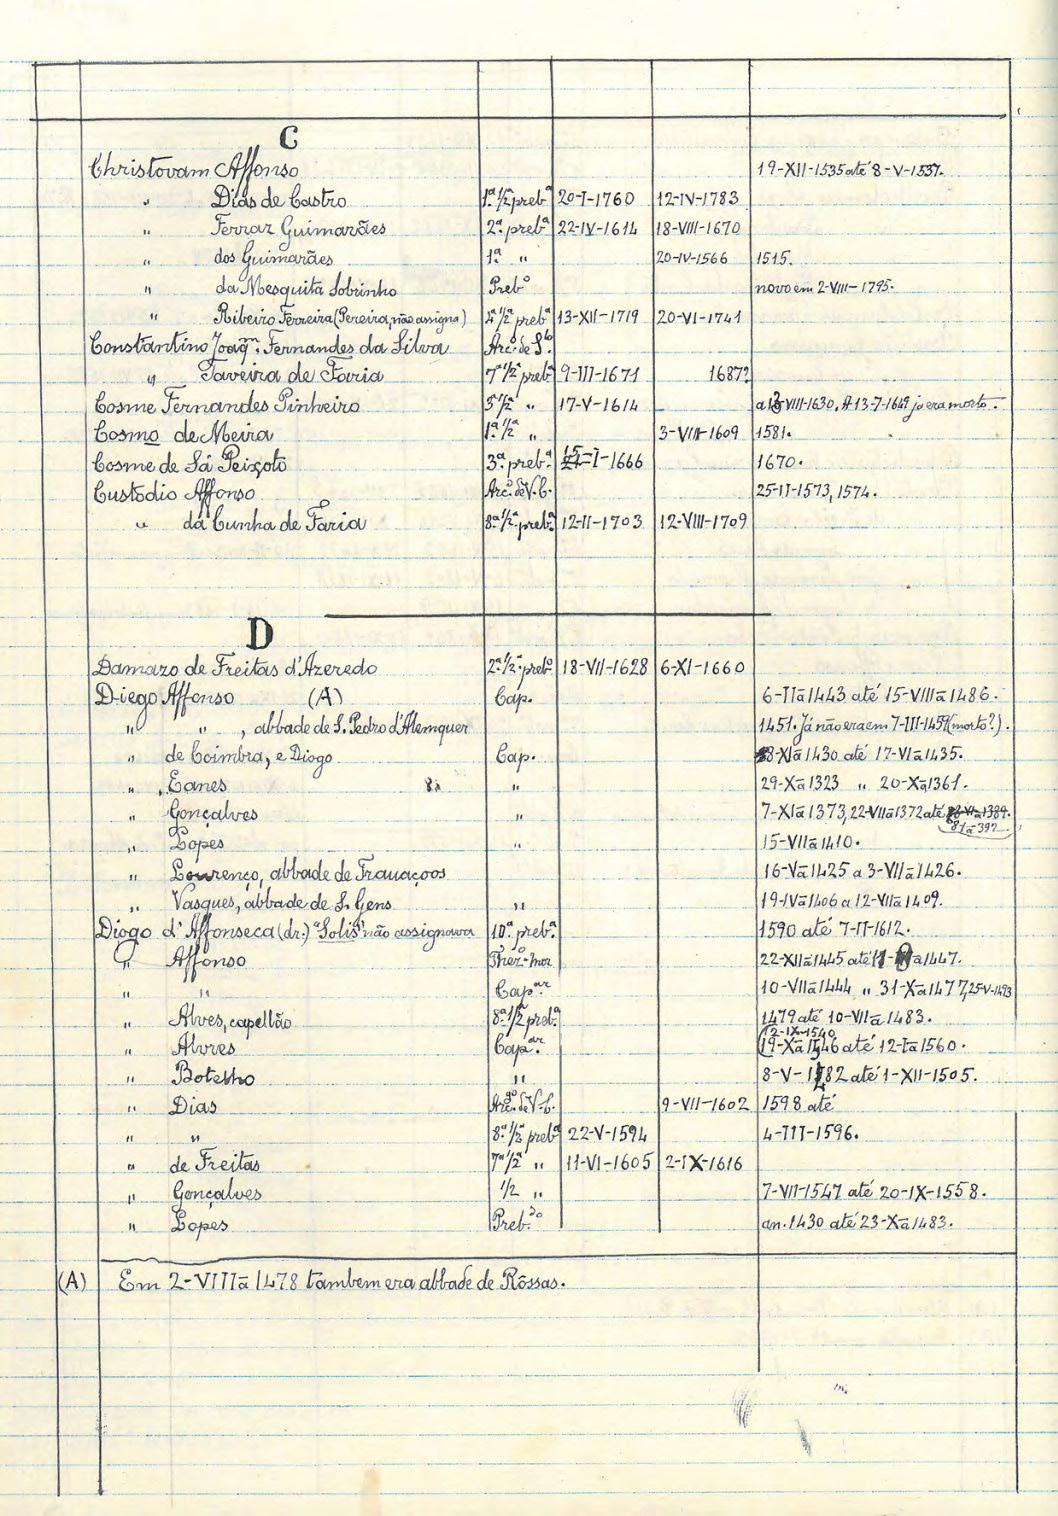 C
Christovam Affonso 19-XII-1535 até 8-V-1537.
" Dias de Castro 1ª ½ prebª 20-I-1760 12-IV-1783
" Ferraz Guimarães 2ª prebª 22-IV-1614 18-VIII-1670
" dos Guimarães 1ª " 20-IV-1566 1515.
" da Mesquita Sobrinho Prebº novo em 2-VIII-1795.
" Ribeiro Ferreira (Pereira, não assigna) ½ prebª 13-XII-1719 20-VI-1741
Constantino Joaqm. Fernandes da Silva Arcº. de S.
" Taveira de Faria 7ª ½ prebª 9-III-1671 1687?
Cosme Fernandes Pinheiro 5ª ½ " 17-V-1614 VIII-1630, A 13-7-1649 já era morto.
Cosmo de Meira 1ª ½ " 3-VIII-1609 1581.
Cosme de Sá Peixoto 3ª prebª I-1666 1670.
Custodio Affonso Arcº de V. C. 25-II-1573, 1574.
" da Cunha de Faria 8ª ½ prebª 12-II-1703 12-VIII-1709
D
Damazo de Freitas d'Azeredo 2ª ½ prebº 18-VII-1628 6-XI-1660
Diego Affonso (A) Cap. 6-IIª 1443 até 15-VIIIª 1486.
" " , abbade de S. Pedro d'Alemquer 1451. Já não era em 7-III-1459 (morto?).
" de Coimbra, e Diogo Cap. 8-XIª 1430 até 17-VIª 1435.
" Eanes " 29-Xª 1323 " 20-Xª 1361.
" Gonçalves " 7-XIª 1373, 22-VIIª 1372 até
" Lopes " 15-VIIª 1410.
" Lourenço, abbade de 16-Vª 1425 a 3-VIIª 1426.
" Vasques, abbade de S. Gens " 19-IVª 1406 a 12-VIIª 1409.
Diogo d'Affonseca (dr.) "Solis" não assignava 10ª prebª 1590 até 7-II-1612.
" Affonso Thez-mor 22-XIIª 1445 até ª 1447.
" " Capar. 10-VIIª 1444 " 31-Xª 1477, 25-V-1493
" Alves, capellão 8ª ½ prebª 1479 até 10-VIIª 1483.
12-IX-1540
" Alvres Capar. 19-Xª 1546 até 12-Iª 1560.
" Botelho " 8-V-1482 até 1-XII-1505.
" Dias Arcº. de V. C. 9-VII-1602 1598 até
" " 8ª ½ prebª 22-V-1594 4-III-1596.
" de Freitas 7ª ½ " 11-VI-1605 2-IX-1616
" Gonçalves ½ " 7-VII-1547 até 20-IX-1558.
" Lopes Preb.do an. 1430 até 23-Xª 1483.
(A) Em 2-VIIIª 1478 tambem era abbade de Rôssas.